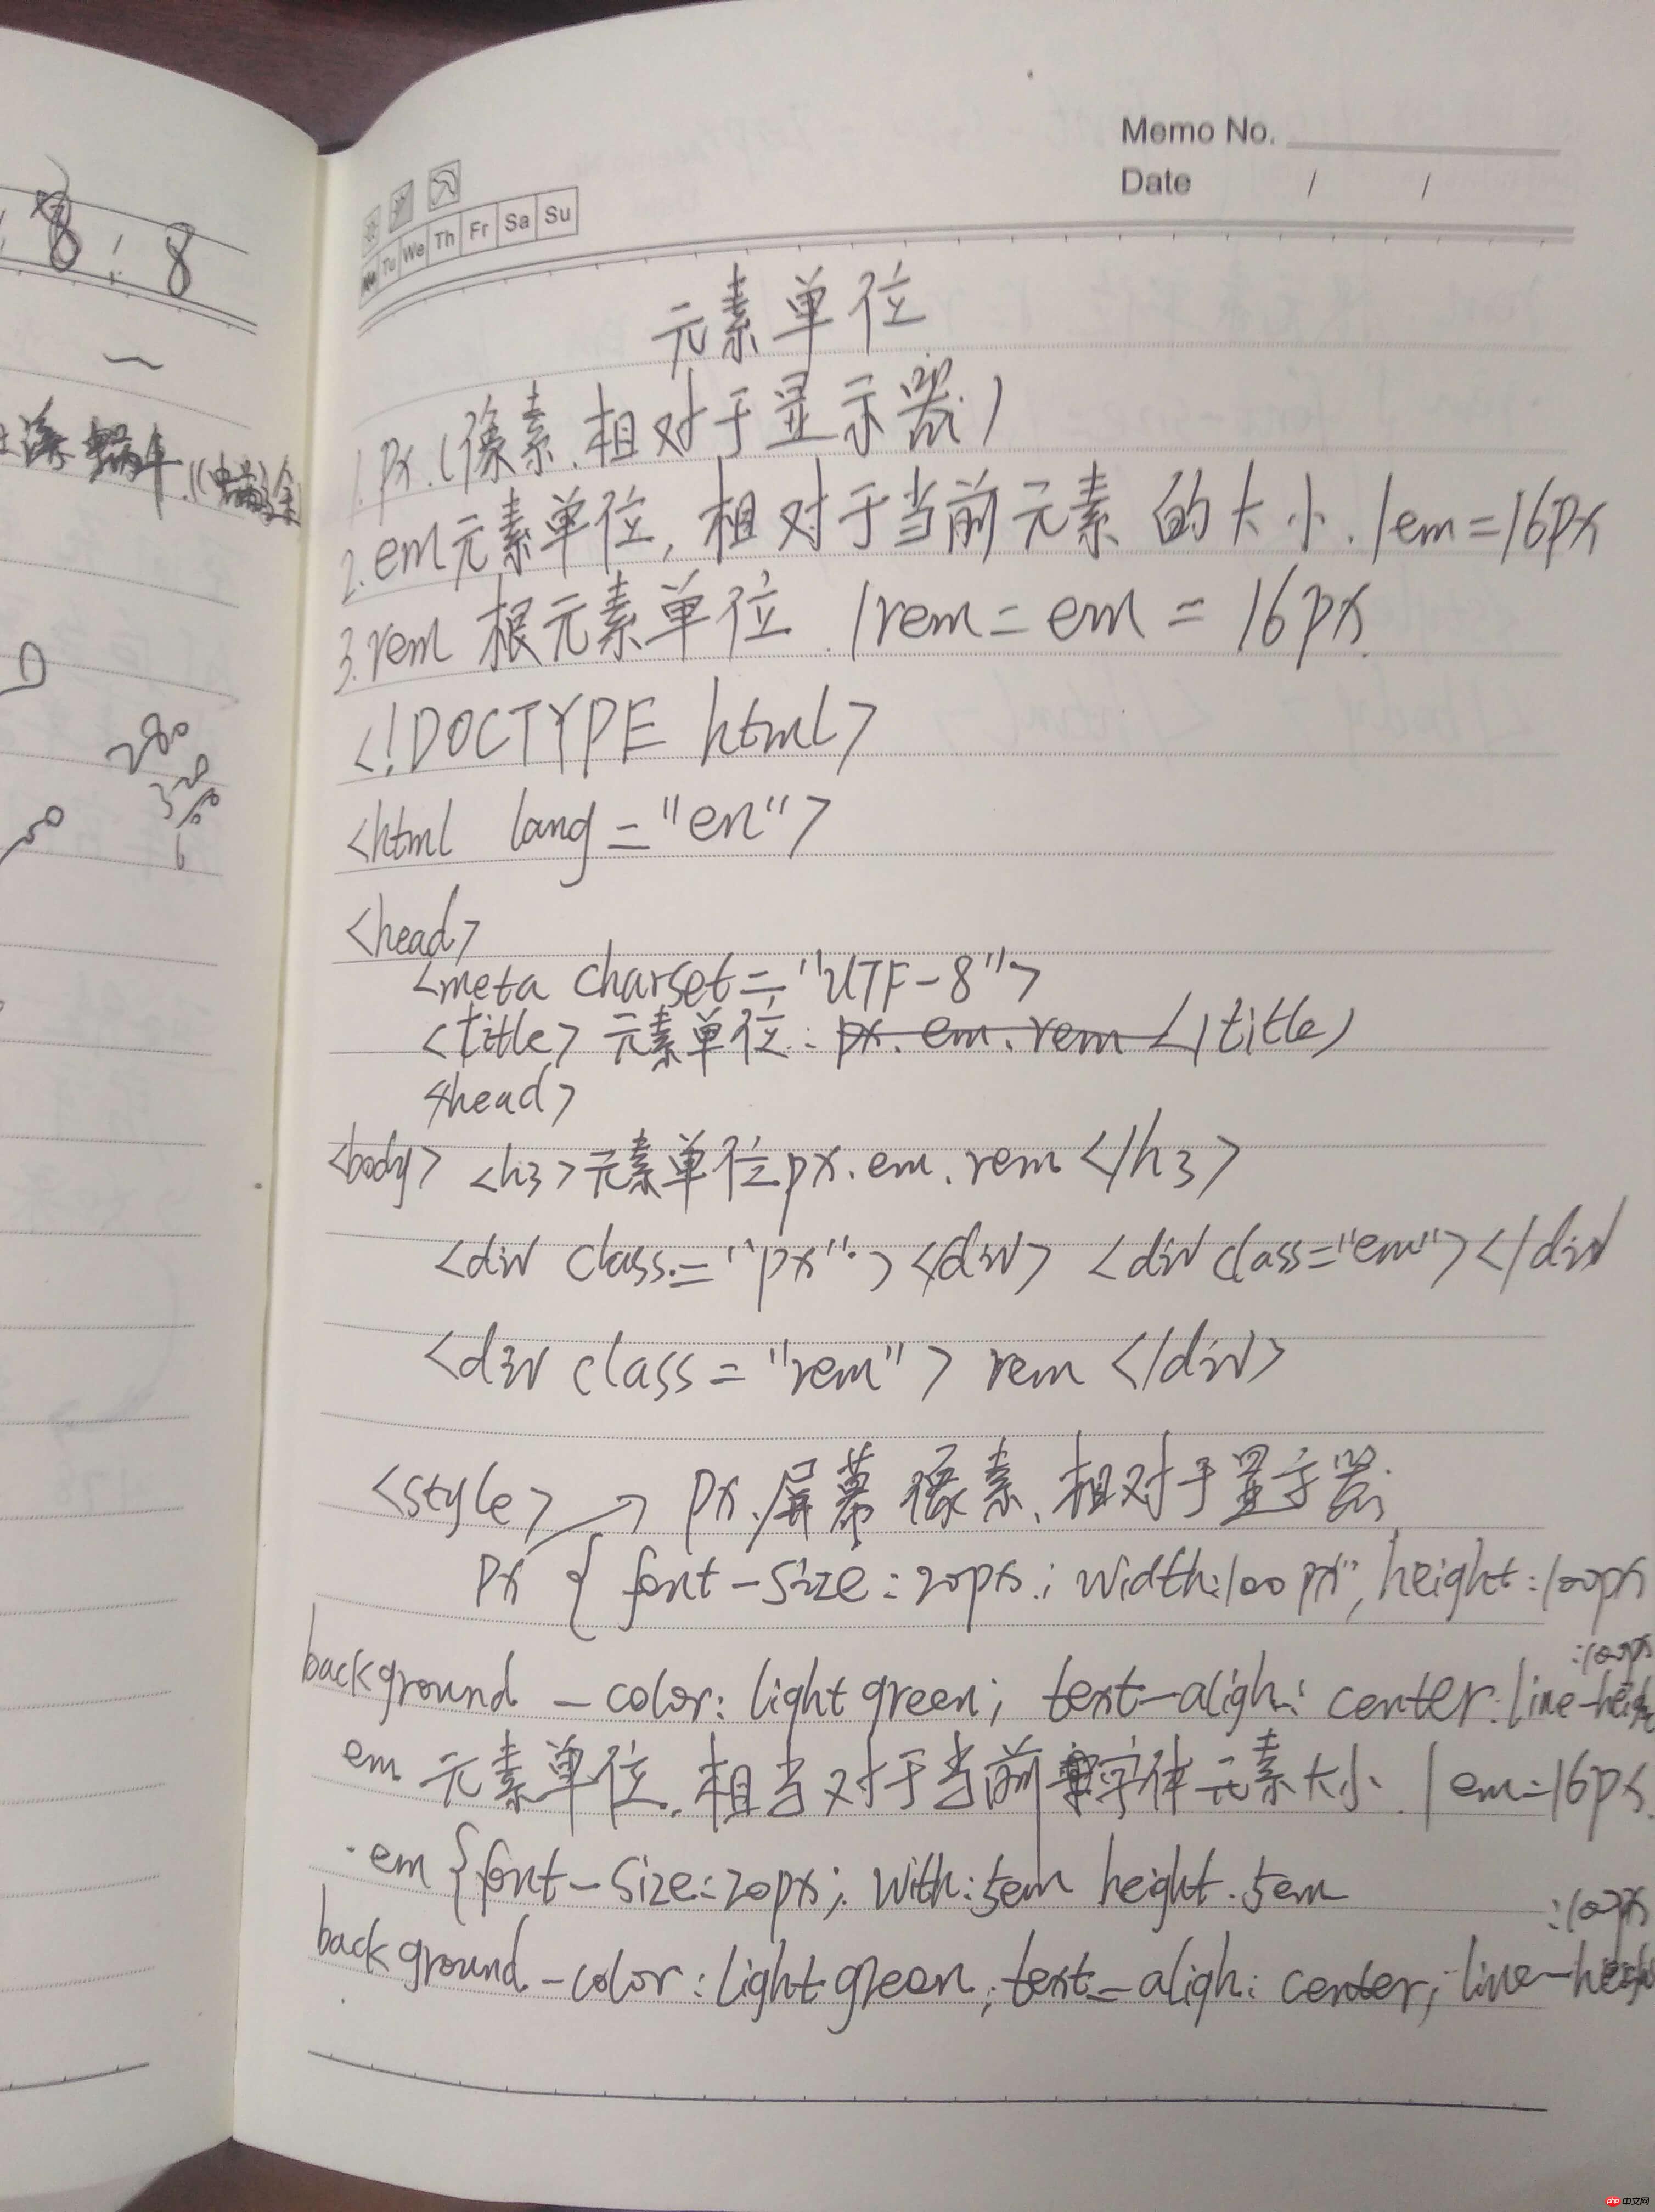 8:8
280
Memo No.
Date / /
Tu We Th Fr Sa Su
元素单位
1.px.(像素.相对于显示器)
2.em元素单位,相对于当前元素的大小.1em=16px
3.rem 根元素单位.1rem=em=16px.
<!DOCTYPE html>
<html lang="en">
<head>
<meta charset="UTF-8">
<title>元素单位:px.em.rem</title>
</head>
<body> <h3>元素单位px.em.rem</h3>
<div class="px"></div> <div class="em"></div
<div class="rem">rem</div>
<style> → px.屏幕像素、相对于显示器
px { font-size:20px; width:100px; height:100px
:100px
background-color:lightgreen; text-aligh:center.line-heigh
em 元素单位.相当对于当前字体元素大小.1em=16px.
.em{font-size:20px; with:5em height.5em
:100px
background-color:lightgreen;text-aligh:center;line-heigh
php 中文网